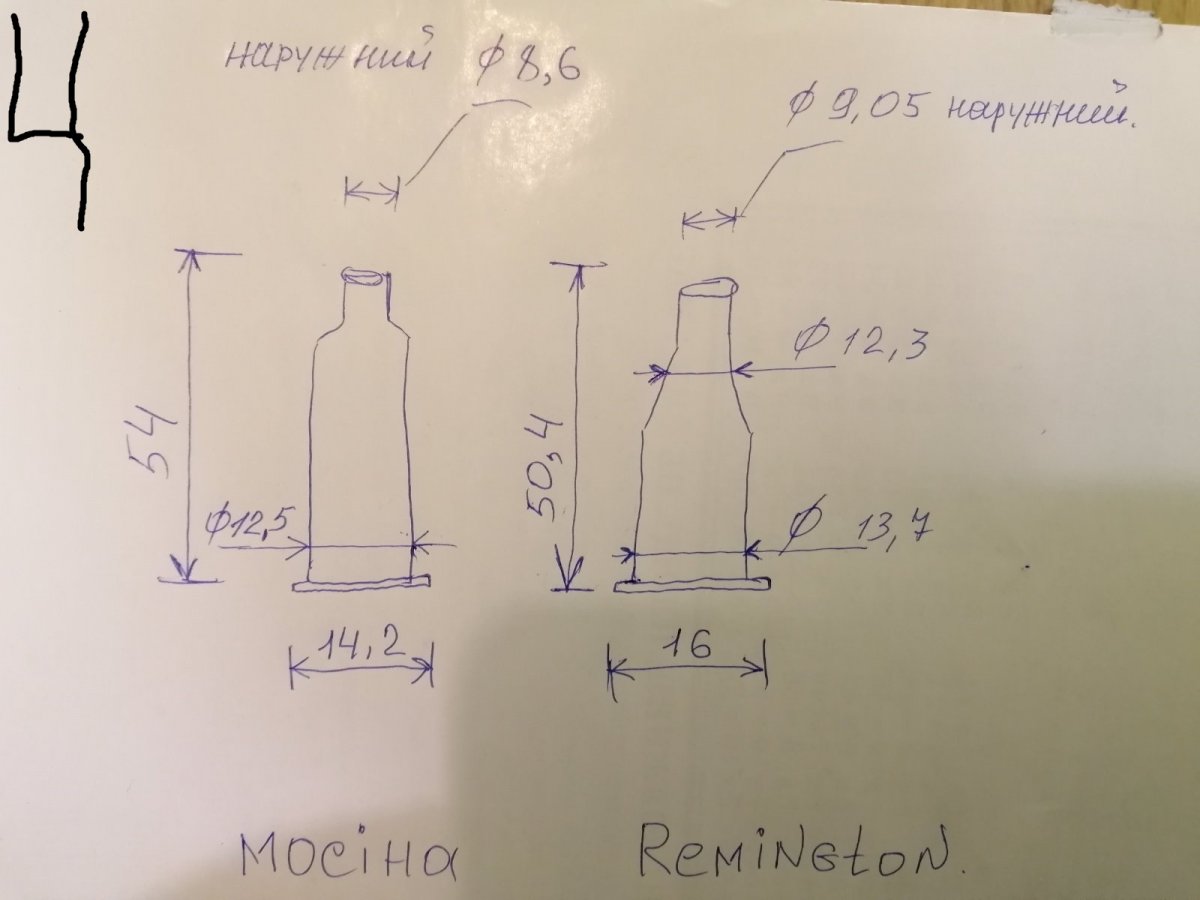 4
наружний ϕ 8,6
ϕ 9,05 наружний.
54
ϕ12,5
14,2
50,4
ϕ 12,3
ϕ 13,7
16
мосіна
Remington.